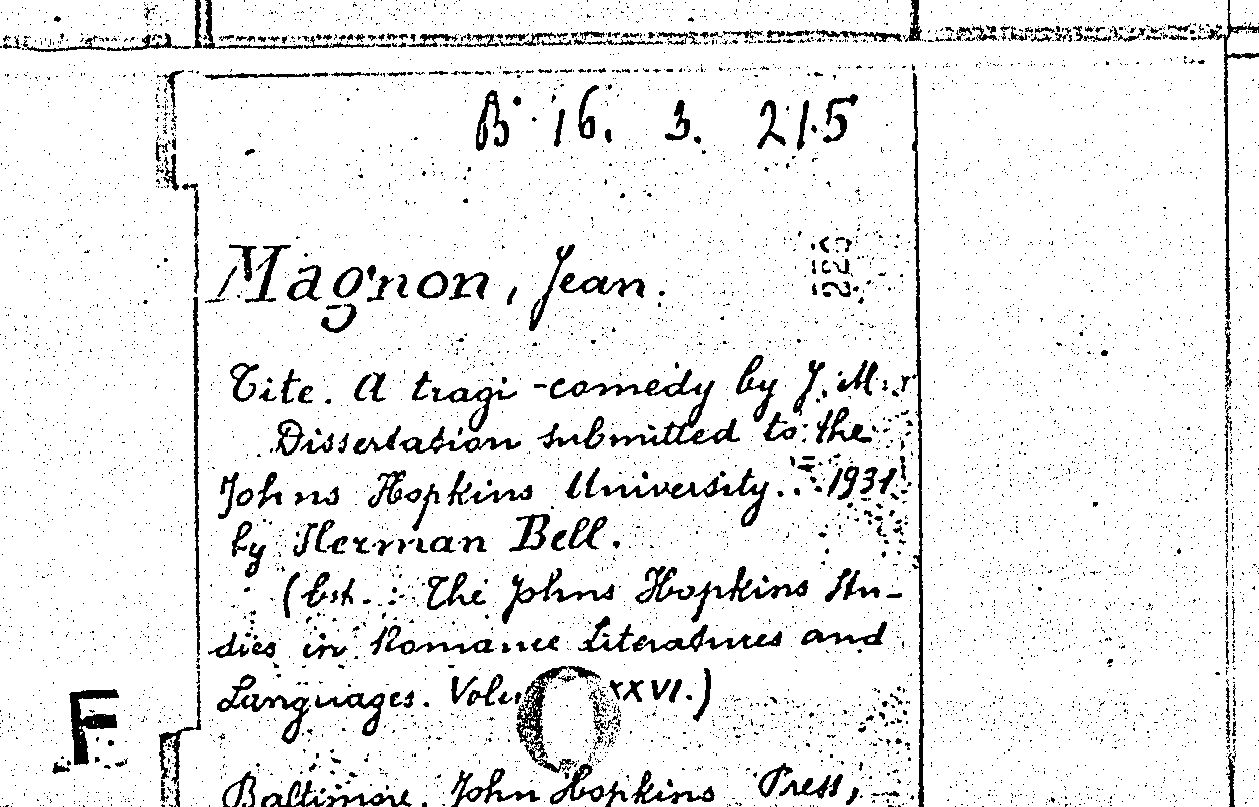 B 16. 3. 215
Magnon, Jean.
225
Tite. A tragi-comedy by J. M.
Dissertation submitted to the
Johns Hopkins University... 1931
by Herman Bell.
(Est.: The Johns Hopkins Stu-
dies in Romance Literatures and
Languages. XXVI.)
F
Baltimore, John Hopkins Press,